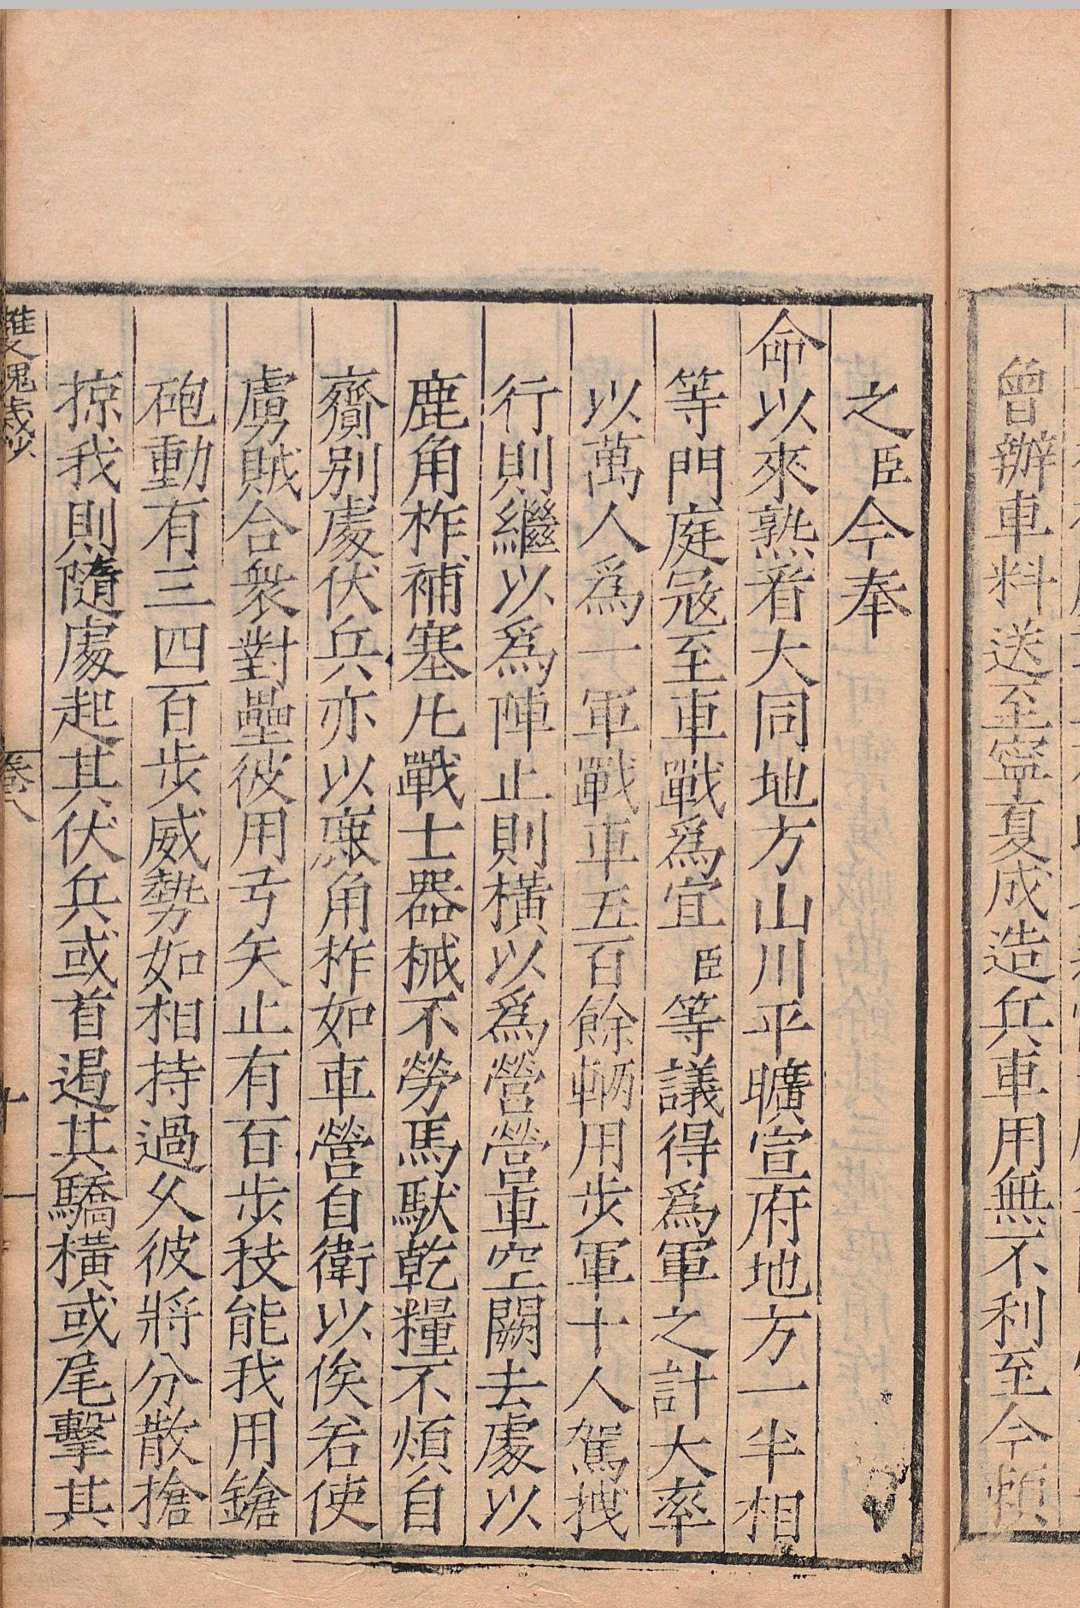 曾辦車料送至寧夏成造兵車用無不利至今頼
之臣今奉
命以來熟看大同地方山川平曠宣府地方一半相
等門庭冦至車戰爲宜臣等議得爲軍之計大率
以萬人爲一軍戰車五百餘輌用步軍十人駕拽
行則繼以爲陣止則橫以爲營營車空闕去處以
鹿角柞補塞凡戰士器械不勞馬馱乾糧不煩自
齎別處伏兵亦以鹿角柞如車營自衛以俟若使
虜賊合衆對壘彼用弓矢止有百步技能我用鎗
砲動有三四百步威勢如相持過久彼將分散搶
掠我則隨處起其伏兵或首遏其驕橫或尾擊其
雙槐歲抄
卷八
十一